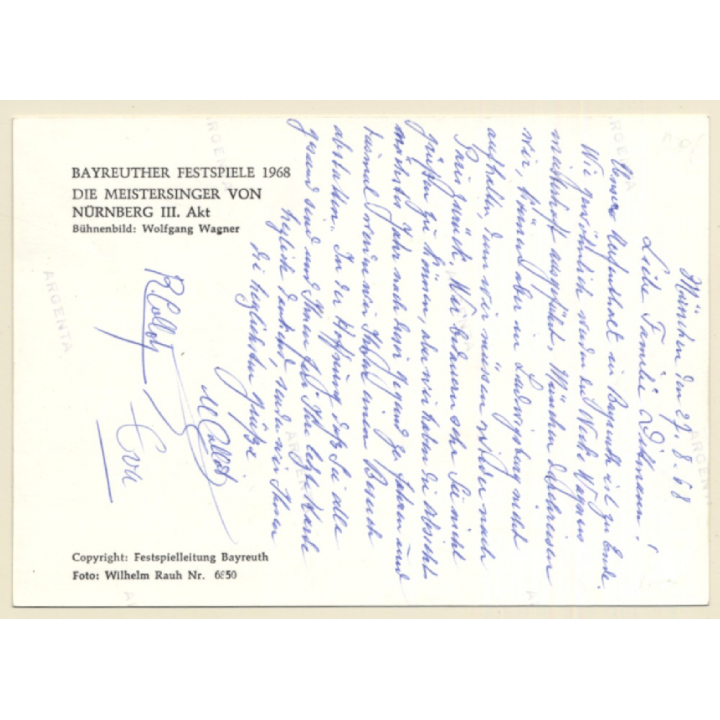 BAYREUTHER FESTSPIELE 1968
DIE MEISTERSINGER VON
NÜRNBERG III. Akt
Bühnenbild: Wolfgang Wagner
München den 29.8.68
Liebe Familie Dittmann!
Unser Aufenthalt in Bayreuth ist zu Ende.
Wir persönlich werden die Werke Wagners
ausgeführt, München
wir, können aber in Ludwigsburg nicht
aufhalten, denn wir müssen wieder nach
Paris zurück. Wir bedauern sehr Sie nicht
grüßen zu können, aber wir haben die Absicht
nächstes Jahr nach dieser Gegend zu fahren und
diesmal werden wir Ihnen einen Besuch
abstatten. In der Hoffnung daß Sie alle
gesund sind und Ihnen für Ihre liebe Karte
herzlich dankend, senden wir Ihnen
die herzlichsten Grüße
R. Collot
M Collot
Eva
Copyright: Festspielleitung Bayreuth
Foto: Wilhelm Rauh Nr. 6850
ARGENTA
ARGENTA
ARGENTA